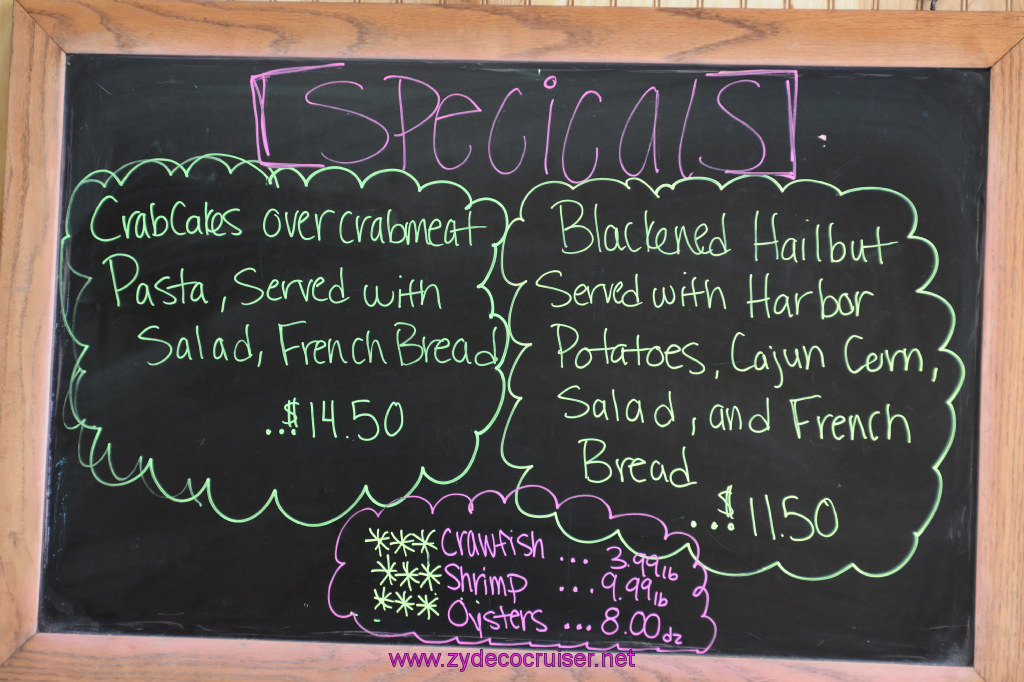 Specicals
CrabCakes over crabmeat
Pasta, Served with
Salad, French Bread
...$14.50
Blackened Hailbut
Served with Harbor
Potatoes, Cajun Corn,
Salad, and French
Bread
...$11.50
***Crawfish ... 3.99lb
***Shrimp ... 9.99lb
*** Oysters ... 8.00dz
www.zydecocruiser.net